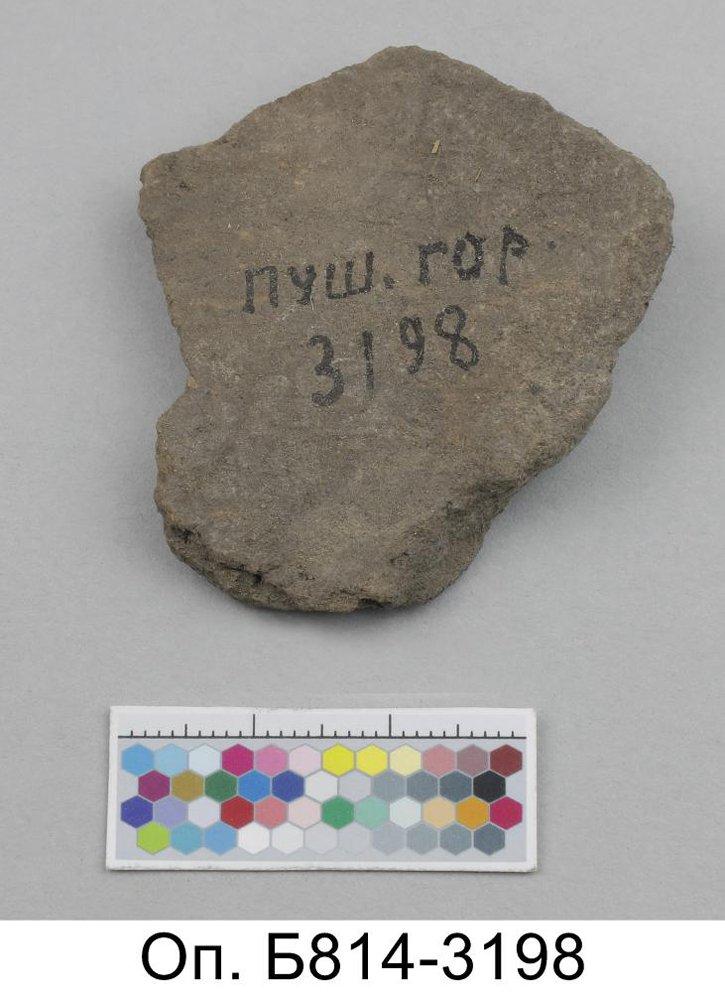 пуш. гор.
3198
Оп. Б814-3198